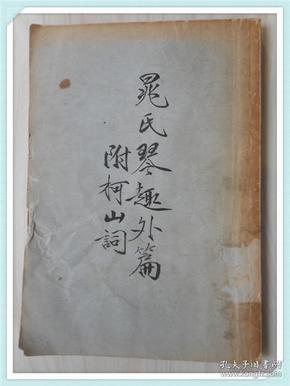 晁氏琴趣外篇
附柯山詞
孔夫子旧书网